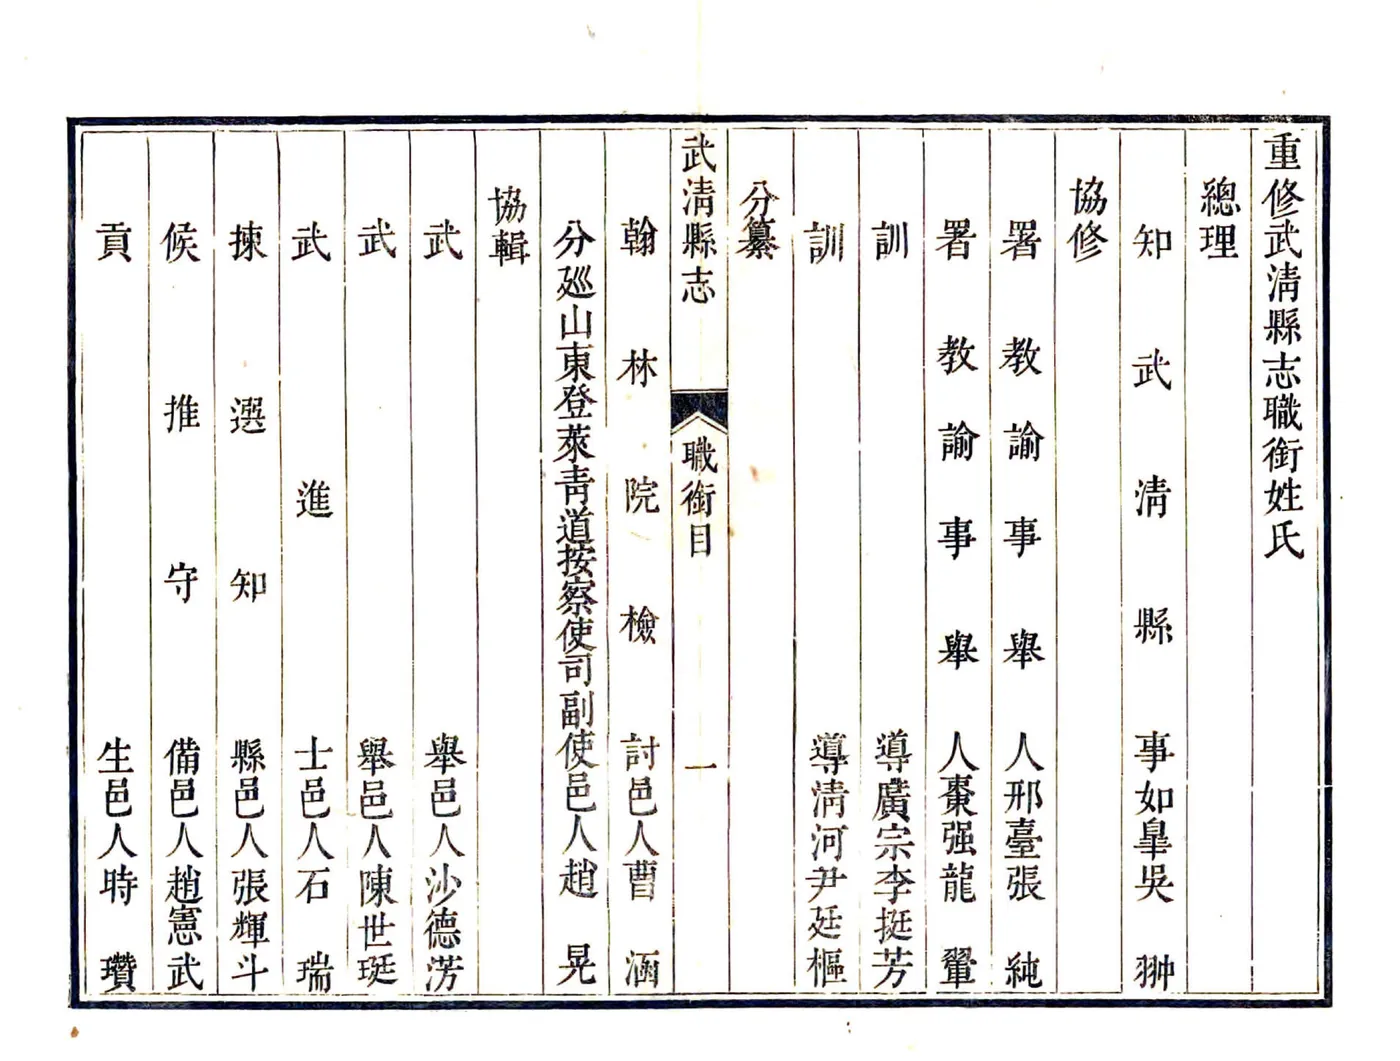 重修武清縣志職銜姓氏
總理
知武清縣事如臯吳翀
協修
署教諭事舉人邢臺張純
署教諭事舉人棗强龍翬
訓導廣宗李挺芳
訓導清河尹廷樞
分纂
武清縣志
職銜目
一
翰林院檢討邑人曹涵
分廵山東登萊青道按察使司副使邑人趙晃
協輯
武舉邑人沙德滂
武舉邑人陳世珽
武進士邑人石瑞
揀選知縣邑人張輝斗
候推守備邑人趙憲武
貢生邑人時瓚